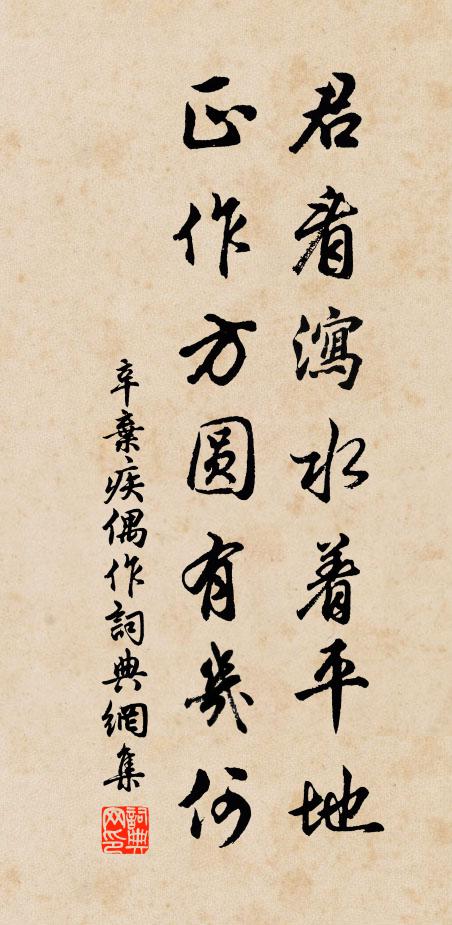 君看瀉水着平地
正作方圆有幾何
辛棄疾偶作詞典網集
詞典网印